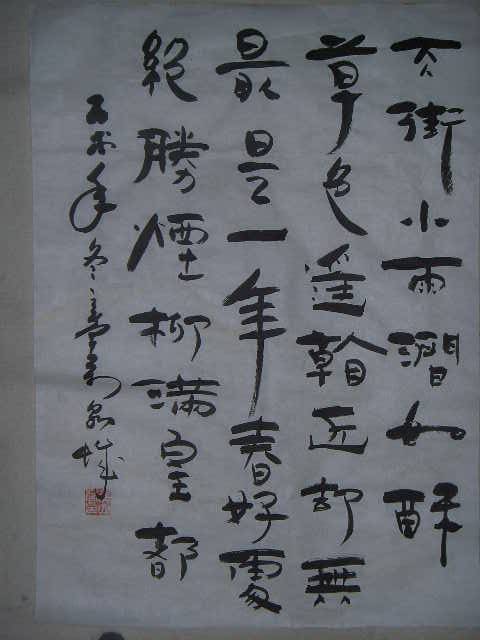 天街小雨潤如酥
草色遥看近却無
最是一年春好處
絕勝煙柳滿皇都
年冬